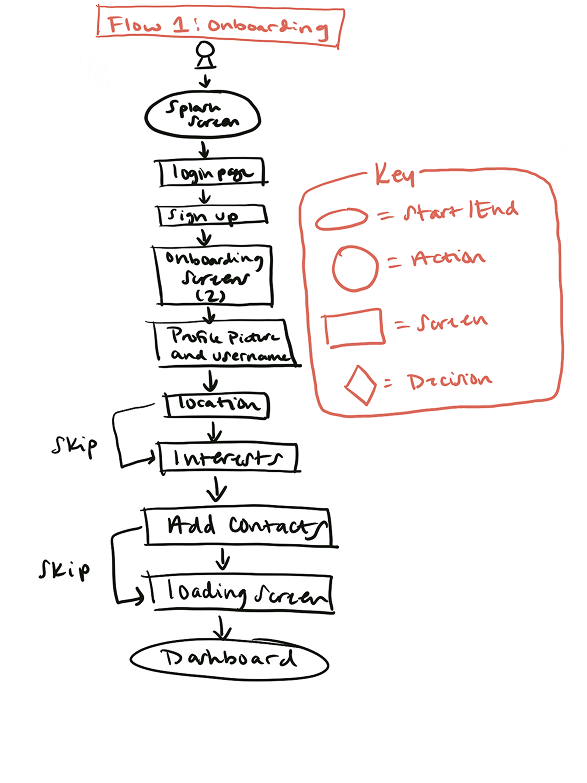 Flow 1: Onboarding
Splash
Screen
login page
Sign up
Onboarding
Screens
(2)
Profile Picture
and username
location
Skip
Interests
Add Contacts
Skip
loading screen
Dashboard
Key
= Start/End
= Action
= Screen
= Decision